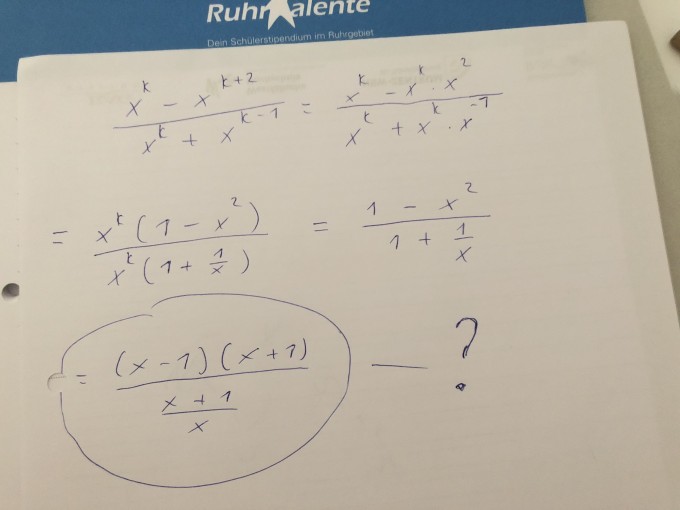 RuhrTalente
Dein Schülerstipendium im Ruhrgebiet
\frac{x^k - x^{k+2}}{x^k + x^{k-1}} = \frac{x^k - x^k \cdot x^2}{x^k + x^k \cdot x^{-1}}
= \frac{x^k (1 - x^2)}{x^k (1 + \frac{1}{x})} = \frac{1 - x^2}{1 + \frac{1}{x}}
= \frac{(x-1)(x+1)}{\frac{x+1}{x}} — ?